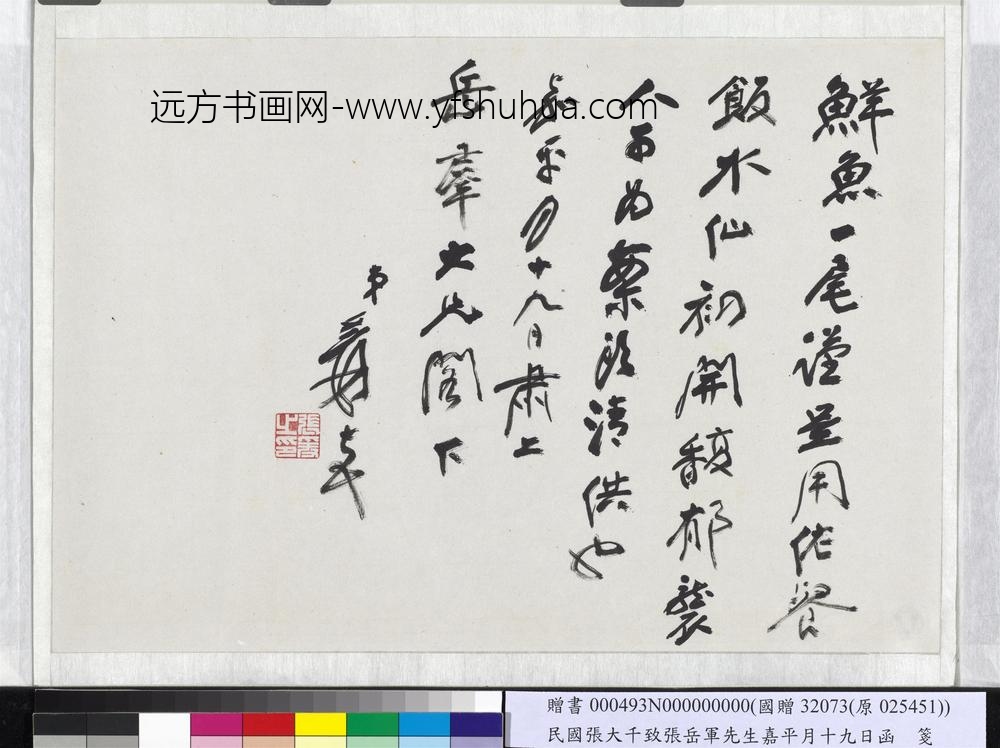 鮮魚一尾謹呈用佐餐
飯水仙初開馥郁襲
人可为案頭清供也
嘉平月十九日肅上
岳軍大兄閣下
弟爰頓首
远方书画网-www.yfshuhua.com
張爰之印
贈書 000493N000000000(國贈 32073(原 025451))
民國張大千致張岳軍先生嘉平月十九日函 箋